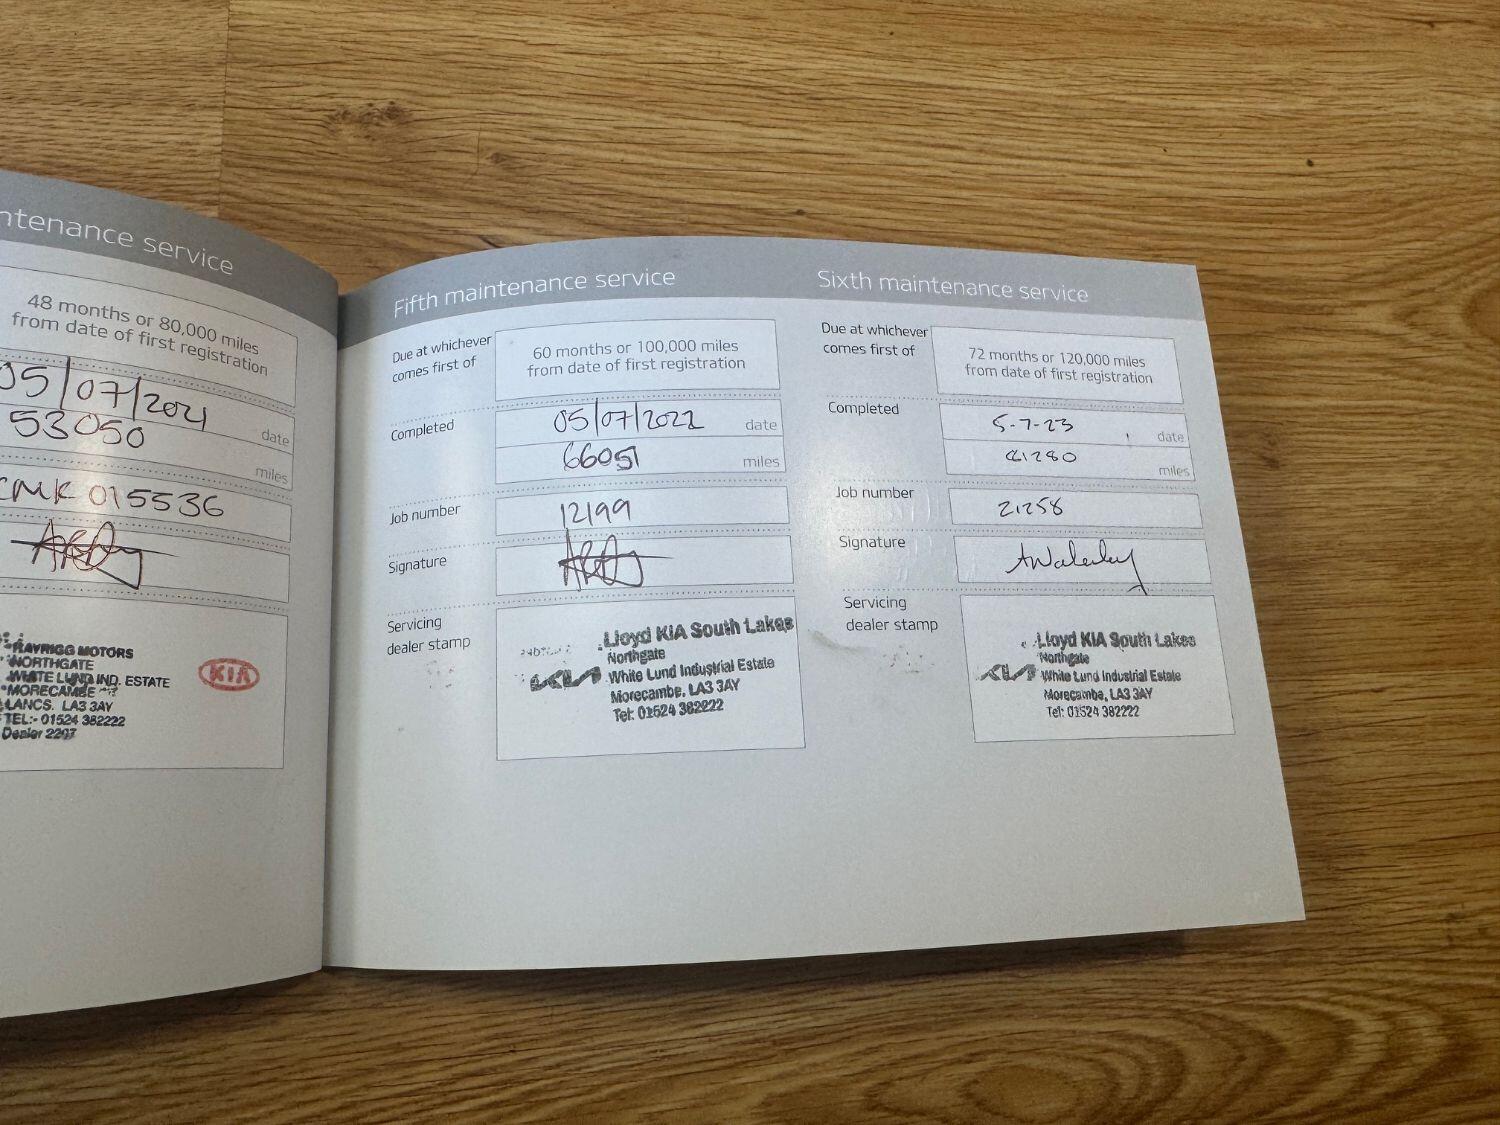 ntenance service
48 months or 80,000 miles
from date of first registration
05/07/2021
date
53050
miles
CMK 015536
RAYRIGG MOTORS
NORTHGATE
WHITE LUND IND. ESTATE
MORECAMBE
LANCS. LA3 3AY
TEL:- 01524 382222
Dealer 2207
KIA
Fifth maintenance service
Due at whichever
comes first of
60 months or 100,000 miles
from date of first registration
Completed
05/07/2022
date
66051
miles
Job number
12199
Signature
Servicing
dealer stamp
Lloyd KIA South Lakes
KIA
Northgate
White Lund Industrial Estate
Morecambe, LA3 3AY
Tel: 01524 382222
Sixth maintenance service
Due at whichever
comes first of
72 months or 120,000 miles
from date of first registration
Completed
5-7-23
date
miles
Job number
21258
Signature
Servicing
dealer stamp
Lloyd KIA South Lakes
KIA
Northgate
White Lund Industrial Estate
Morecambe, LA3 3AY
Tel: 01524 382222